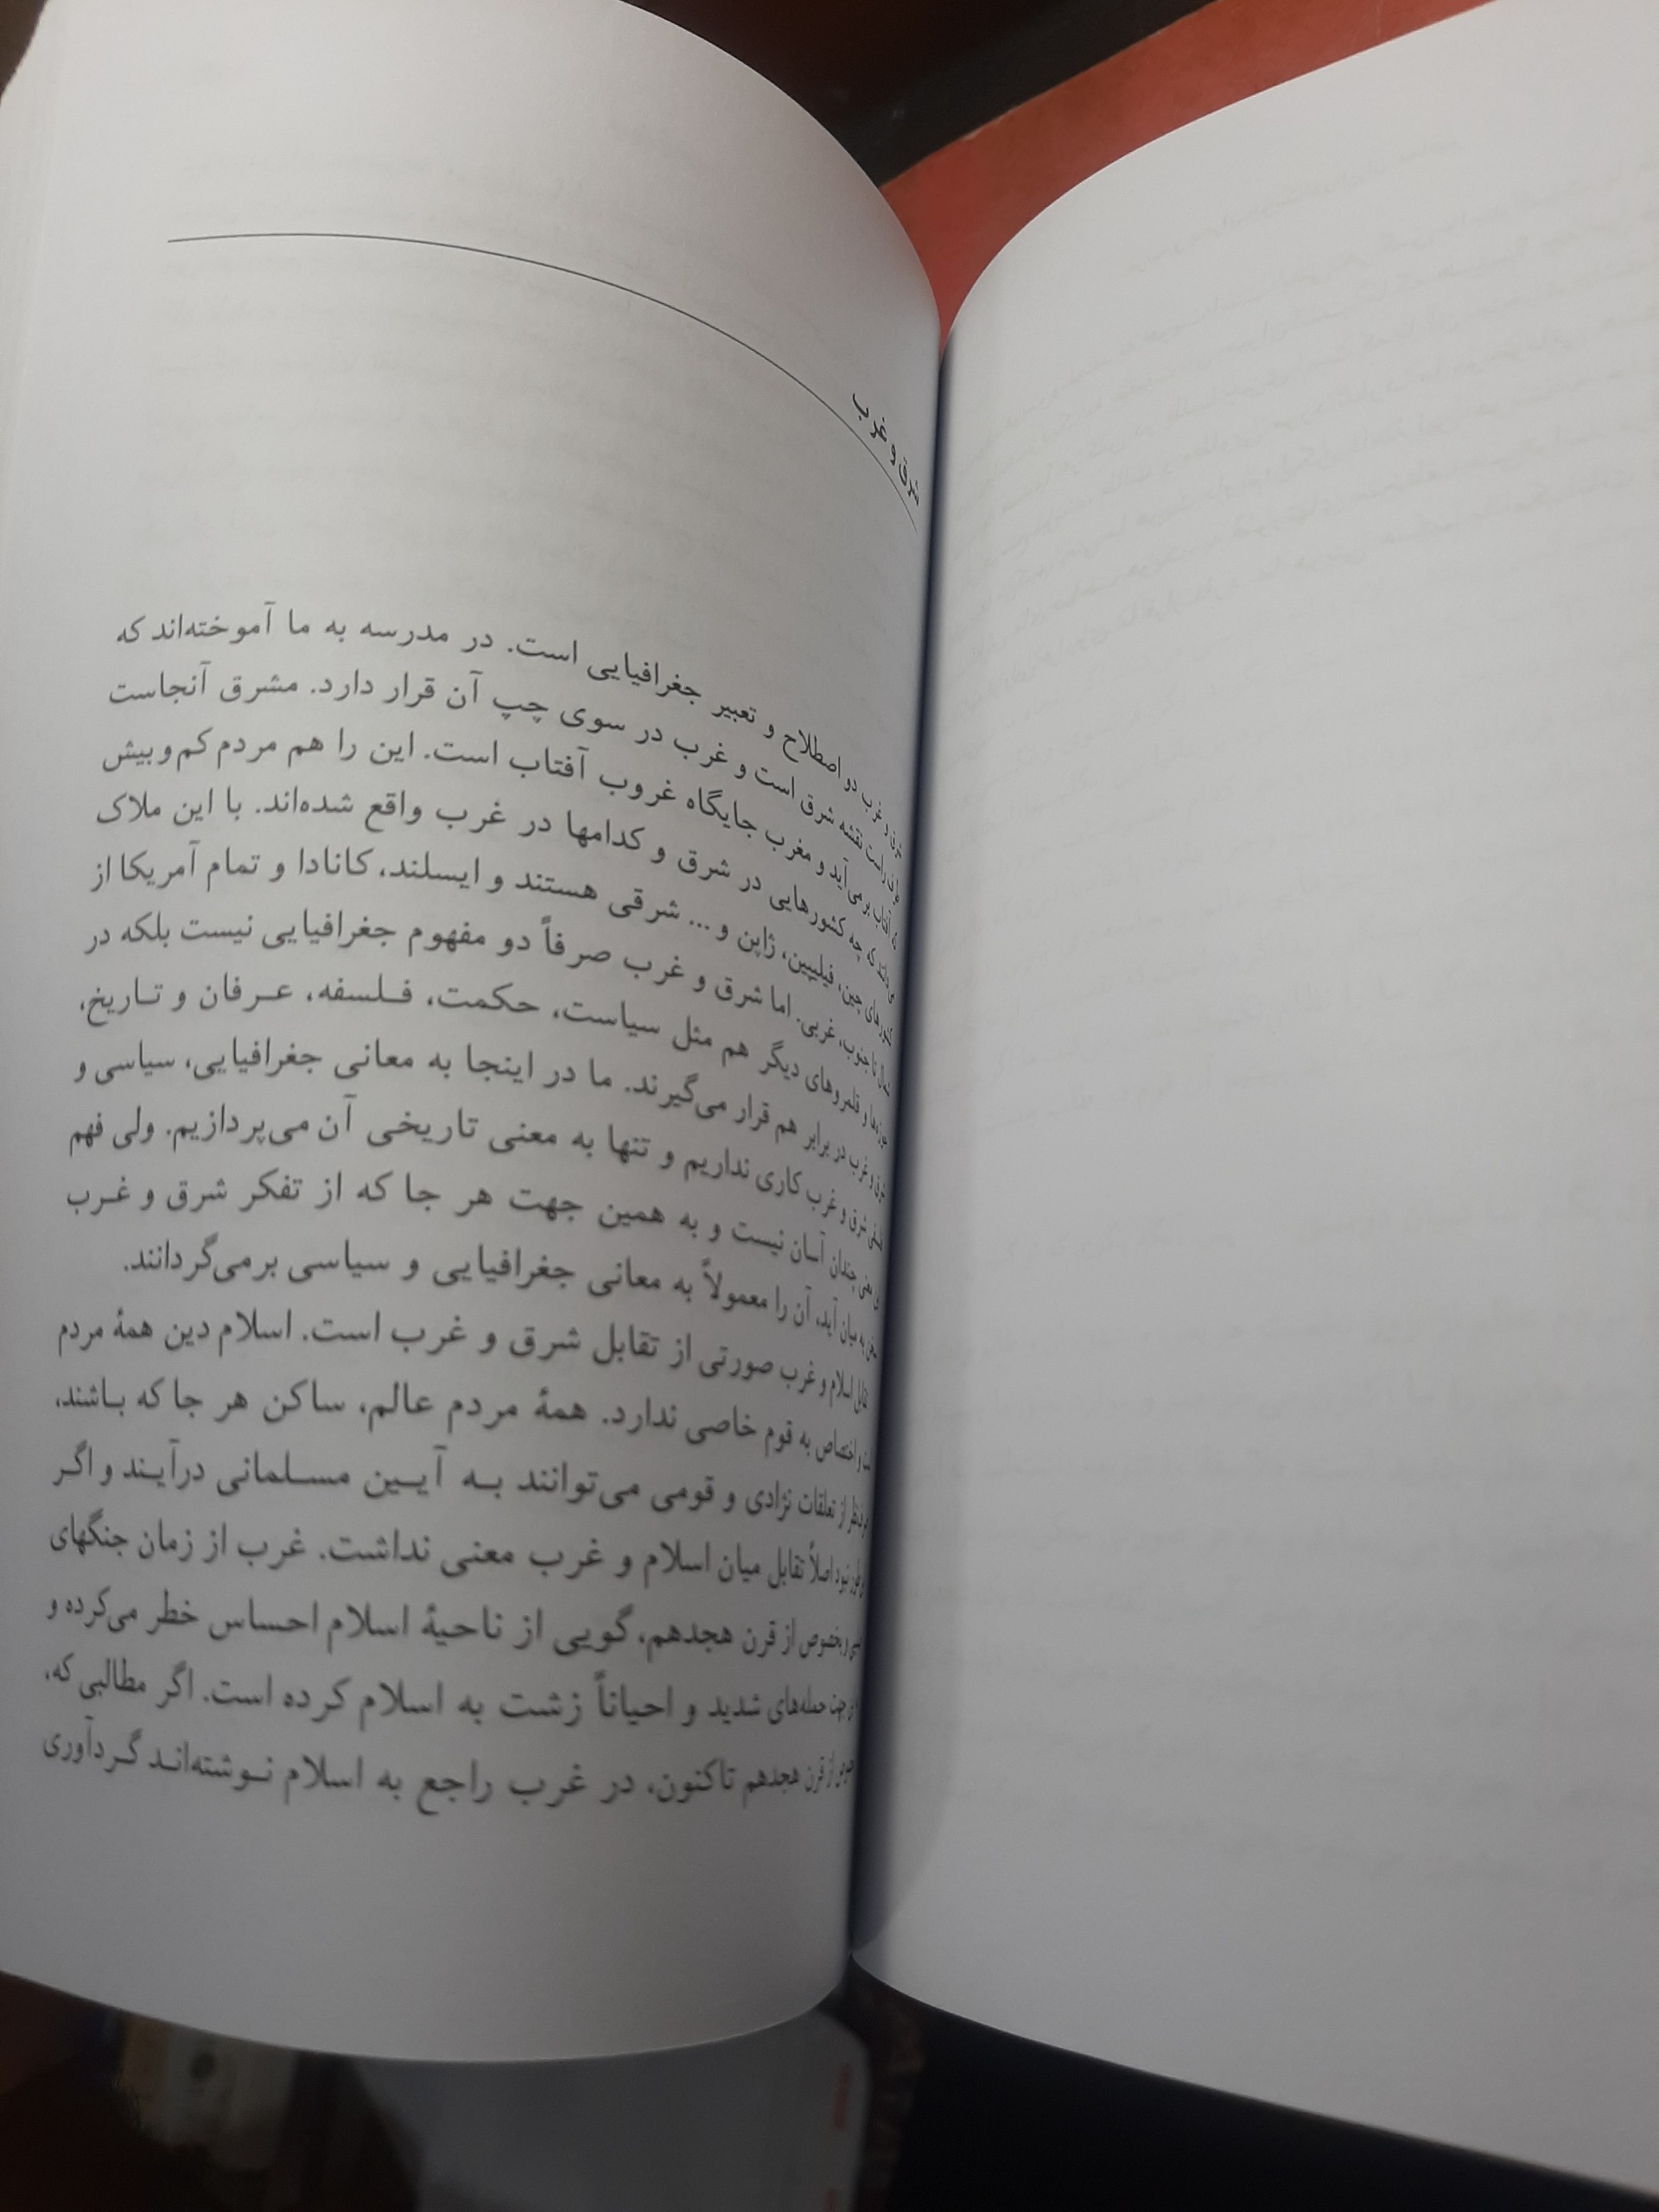 شرق و غرب
شرق و غرب دو اصطلاح و تعبیر جغرافیایی است. در مدرسه به ما آموخته‌اند که
طرف راست نقشه شرق است و غرب در سوی چپ آن قرار دارد. مشرق آنجاست
که آفتاب برمی‌آید و مغرب جایگاه غروب آفتاب است. این را هم مردم کم‌وبیش
می‌دانند که چه کشورهایی در شرق و کدامها در غرب واقع شده‌اند. با این ملاک
کشورهای چین، فیلیپین، ژاپن و... شرقی هستند و ایسلند، کانادا و تمام آمریکا از
شمال تا جنوب، غربی. اما شرق و غرب صرفاً دو مفهوم جغرافیایی نیست بلکه در
حوزه‌ها و قلمروهای دیگر هم مثل سیاست، حکمت، فلسفه، عرفان و تاریخ،
شرق و غرب در برابر هم قرار می‌گیرند. ما در اینجا به معانی جغرافیایی، سیاسی و
فلسفی شرق و غرب کاری نداریم و تنها به معنی تاریخی آن می‌پردازیم. ولی فهم
معنی چندان آسان نیست و به همین جهت هر جا که از تفکر شرق و غرب
سخن به میان آید، آن را معمولاً به معانی جغرافیایی و سیاسی برمی‌گردانند.
تقابل اسلام و غرب صورتی از تقابل شرق و غرب است. اسلام دین همهٔ مردم
است و اختصاص به قوم خاصی ندارد. همهٔ مردم عالم، ساکن هر جا که باشند،
صرف‌نظر از تعلقات نژادی و قومی می‌توانند به آیین مسلمانی درآیند و اگر
طور نبود اصلاً تقابل میان اسلام و غرب معنی نداشت. غرب از زمان جنگهای
و بخصوص از قرن هجدهم، گویی از ناحیهٔ اسلام احساس خطر می‌کرده و
جهت حمله‌های شدید و احیاناً زشت به اسلام کرده است. اگر مطالبی که،
از قرن هجدهم تاکنون، در غرب راجع به اسلام نوشته‌اند گردآوری